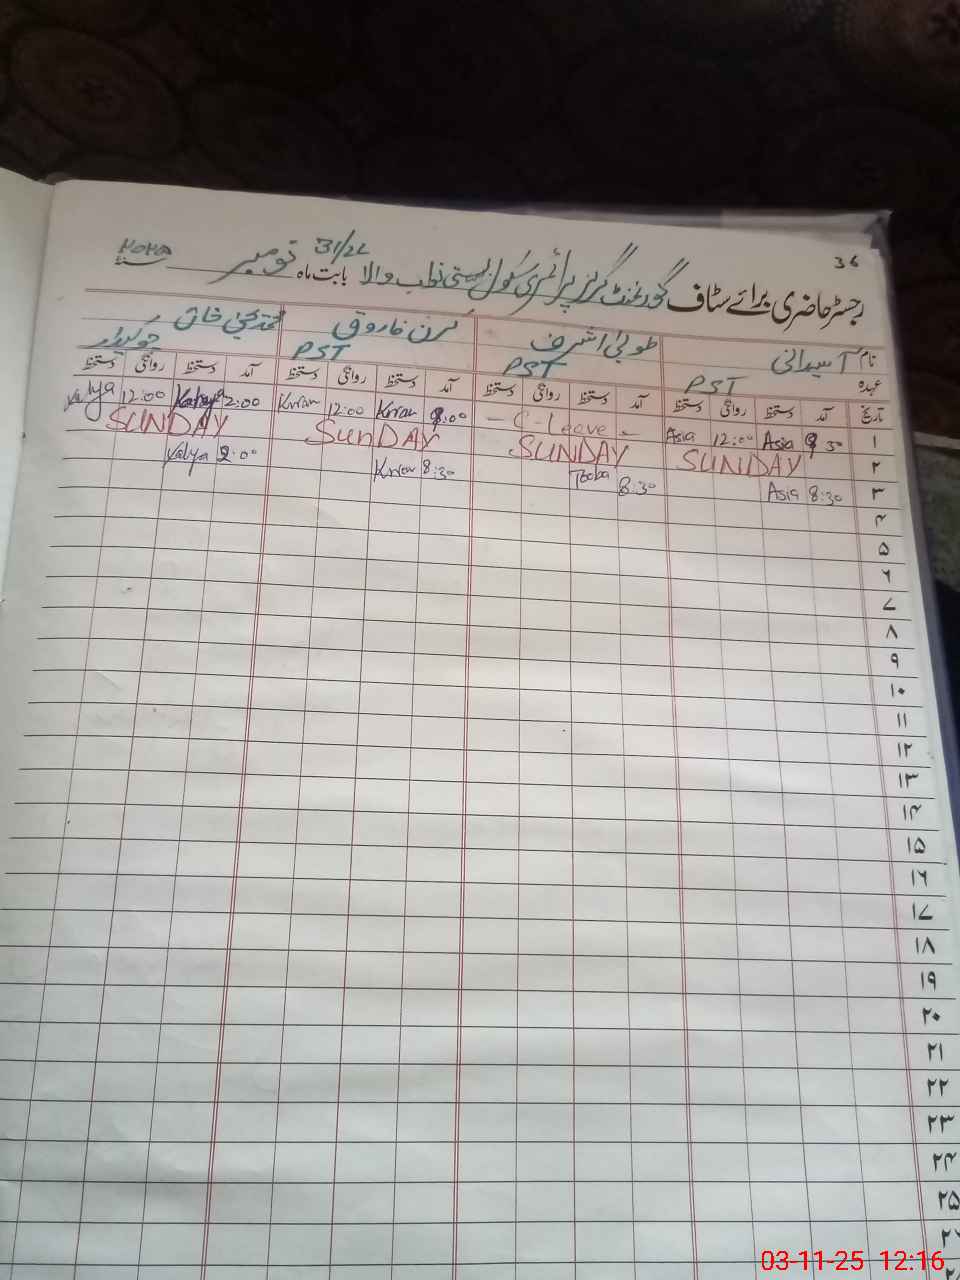 36
31/2L ۲۰۲۵
رجسٹر حاضری برائے سٹاف گورنمنٹ گرلز پرائمری سکول بستی والا بابت ماہ نومبر
نام آسیہ طوبیٰ اشرف کرن فاروق محمد یحییٰ خان
عہدہ PST PST PST چوکیدار
تاریخ آمد دستخط روانگی دستخط آمد دستخط روانگی دستخط آمد دستخط روانگی دستخط آمد دستخط روانگی دستخط
۱ 30 Asia 12:00 Asia - C-Leave - 8:00 Kiran 12:00 Kiran 2:00 12:00
۲ SUNDAY SUNDAY SunDAY SUNDAY
۳ 8:30 Asia 8:30 Tooba 8:30 Kiran Yahya
۴
۵
۶
۷
۸
۹
۱۰
۱۱
۱۲
۱۳
۱۴
۱۵
۱۶
۱۷
۱۸
۱۹
۲۰
۲۱
۲۲
۲۳
۲۴
۲۵
03-11-25 12:16